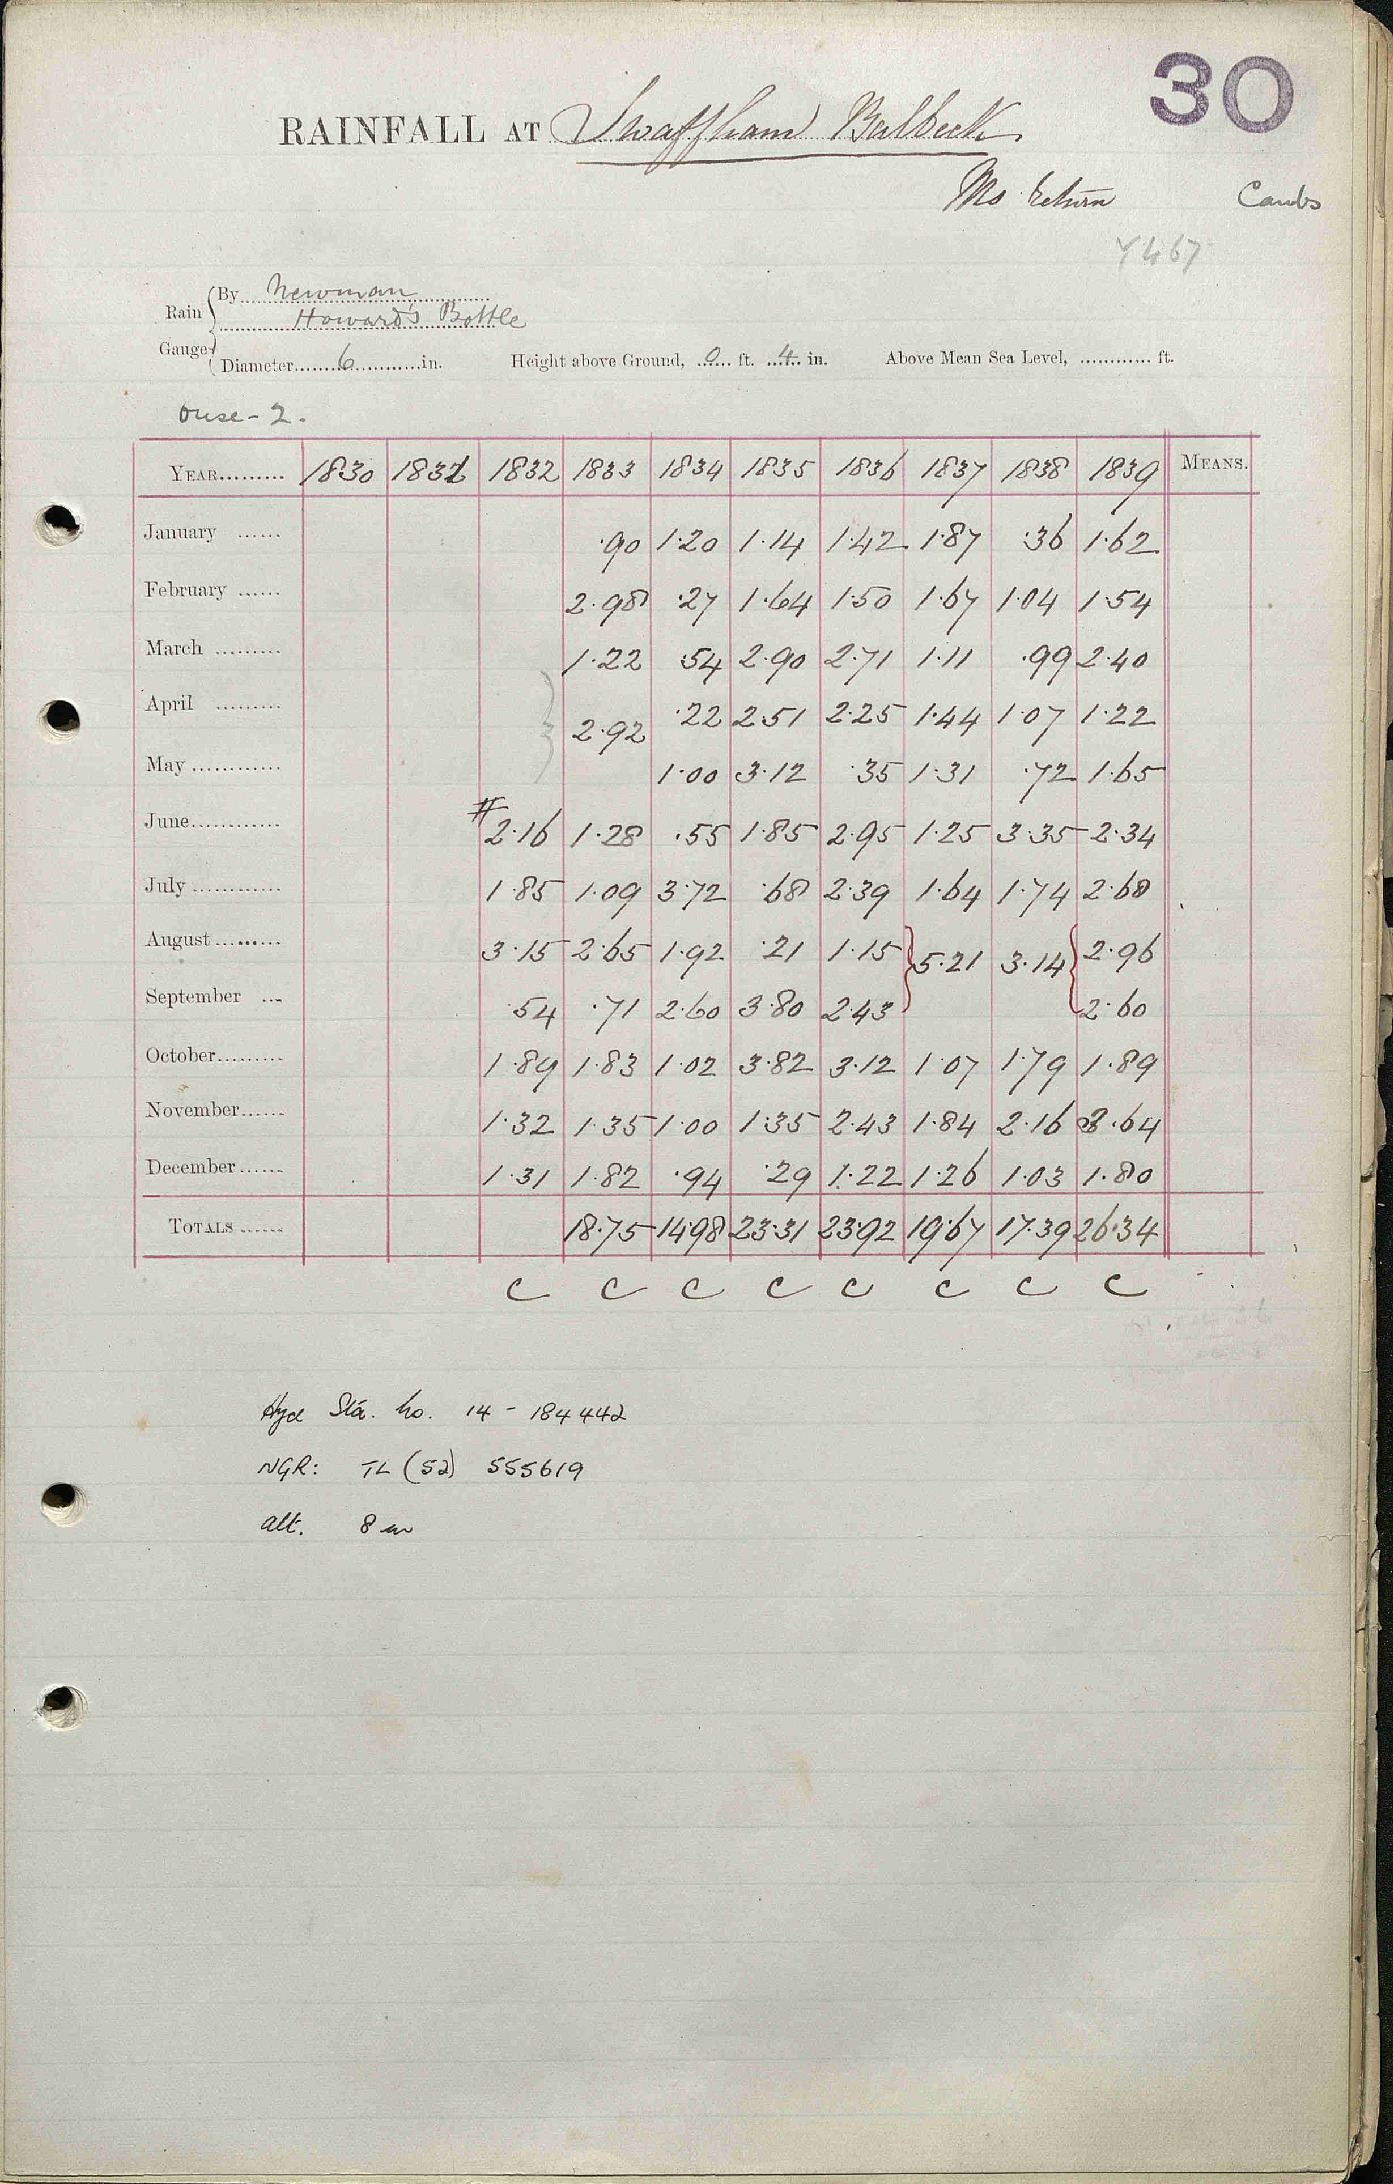 30
RAINFALL AT Swaffham Bulbeck
Ms Return Cambs
Rain Gauge By Newman
Howard's Bottle
Diameter 6 in. Height above Ground, 0 ft. 4 in. Above Mean Sea Level, ft.
Ouse - 2.
YEAR 1830 1831 1832 1833 1834 1835 1836 1837 1838 1839 MEANS.
January .90 1.20 1.14 1.42 1.87 .36 1.62
February 2.98 .27 1.64 1.50 1.67 1.04 1.54
March 1.22 .54 2.90 2.71 1.11 .99 2.40
April 2.92 .22 2.51 2.25 1.44 1.07 1.22
May 1.00 3.12 .35 1.31 .72 1.65
June #2.16 1.28 .55 1.85 2.95 1.25 3.35 2.34
July 1.85 1.09 3.72 .68 2.39 1.64 1.74 2.68
August 3.15 2.65 1.92 .21 1.15 } 5.21 3.14 { 2.96
September .54 .71 2.60 3.80 2.43 2.60
October 1.89 1.83 1.02 3.82 3.12 1.07 1.79 1.89
November 1.32 1.35 1.00 1.35 2.43 1.84 2.16 3.64
December 1.31 1.82 .94 .29 1.22 1.26 1.03 1.80
TOTALS 18.75 14.98 23.31 23.92 19.67 17.39 26.34
C C C C C C C C
Hyd Sta. No. 14 - 184442
NGR: TL (52) 555619
alt. 8 m